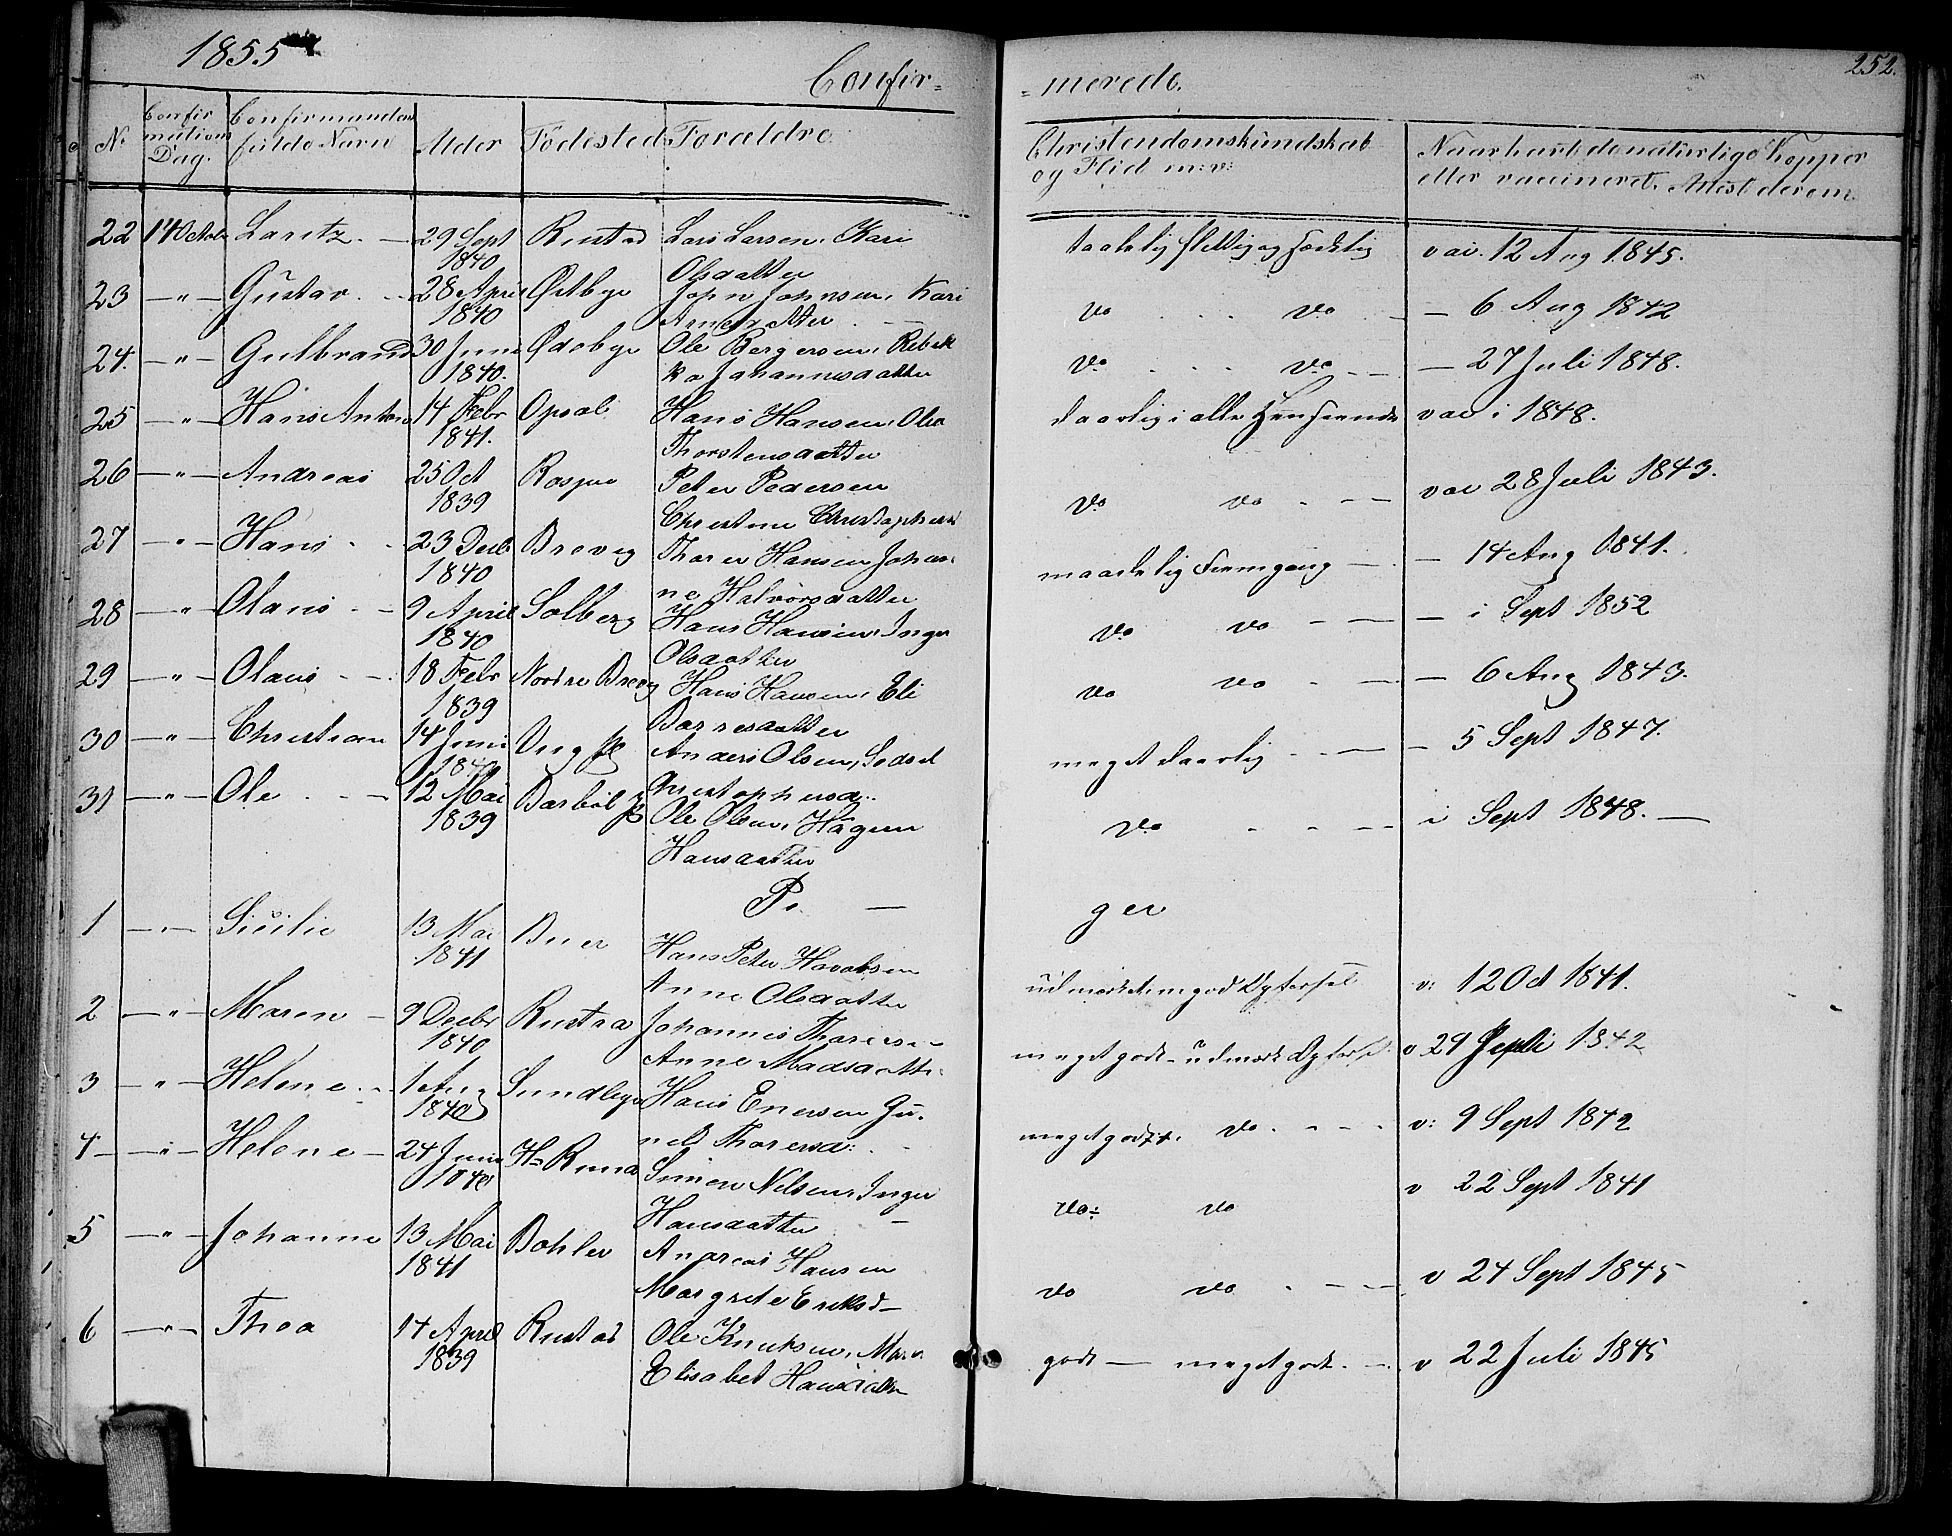 1855
Confir-
-merede.
252.
No
Confirmations Dag.
Confirmandens fulde Navn
Alder
Födested
Forældre
Christendomskundskab og Flid m: v:
Naar havt de naturlige Kopper eller vaccineret. Attest derom
22 14 October Laritz. — 29 Sept 1840 Rustad Lars Larsen, Kari Olsdatter taalelig flittig og sædelig vac. 12 Aug 1845.
23 —"— Gustav. 28 April 1840 Østbye John Johnsen, Kari Arnesdatter do do — 6 Aug 1842
24. —"— Gulbrand 30 Juni 1840. Ødebye Ole Bergersen, Rebekka Johannesdatter do do — 27 Juli 1848.
25 —"— Hans Anton 14 Febr 1841. Opsal Hans Hansen, Olea Thorstensdatter daarlig i alle Henseende vac i 1848.
26 —"— Andreas 25 Oct 1839 Peter Pedersen Christine do do vac 28 Juli 1843.
27 —"— Hans 23 Decb 1840 Brevig Thorer Hansen Johanne Halvorsdatter maadelig Fremgang — 14 Aug 1841.
28 —"— Olaus 9 April 1840 Solberg Hans Hansen, Inger Olsdatter do do — i Sept 1852
29 —"— Olaus 18 Febr 1839 Nordre Brevig Hans Hansen, Eli do do — 6 Aug 1843.
30 —"— Christian 14 Juni 1840 Anders Olsen, meget daarlig — 5 Sept 1847.
31 —"— Ole 12 Mai 1839 Ole Olsen, Hansdatter do i Sept 1848. —
Pi— ger
1 —"— Sicilie 13 Mai 1841 Buer Hans Peter Anne Olsdatter udmærket m god Opførsel v: 12 Oct 1841.
2 —"— Maren — 9 Decbr 1840 Rustad Johannes Thoresen Anne Madsdatter meget godt — udmærk Opførsel v 29 1842
3 —"— Helene 1 Aug 1840 Sundbye Hans Enersen Gunild Thoresd: meget godt. do v: 9 Sept 1842
4 —"— Helene — 24 Juni 1840 Simen Nilsen, Inger Hansdatter do: do v 22 Sept 1841
5 —"— Johanne 13 Mai 1841 Bohler Andreas Hansen Margrete Eriksd— do do v 24 Sept 1845
6 —"— Thea 14 April 1839 Rustad Ole Knutsen, Elisabet Hansdatter godt — meget godt. v 22 Juli 1845